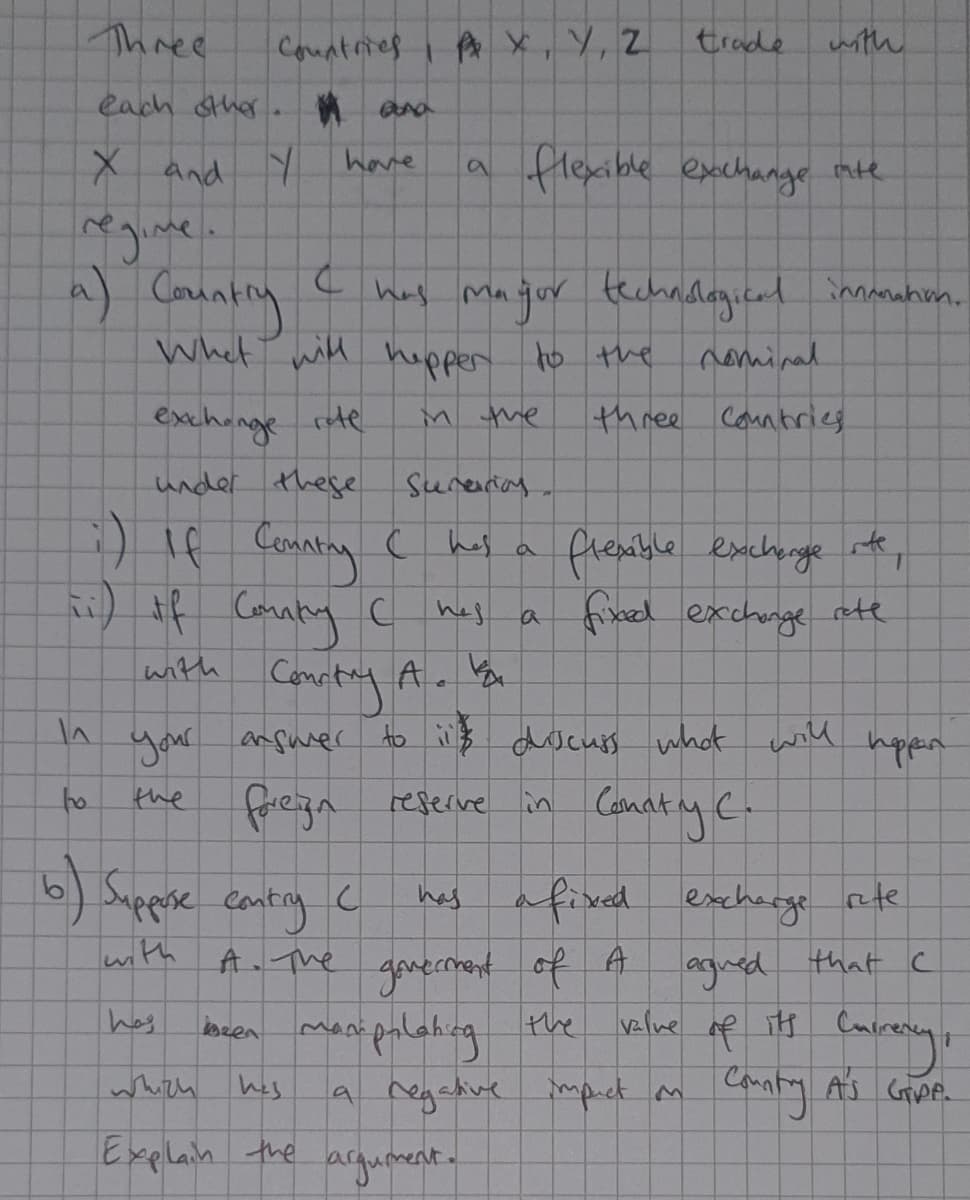 Three Countries, X, Y, Z trade with
each other. and
X and Y have a flexible exchange rate
regime.
a) Country C has major technological innovation.
What will happen to the nominal
exchange rate in the three Countries
under these
i) If Country C has a flexible exchange rte,
ii) If Country C has a fixed exchange rate
with Country A.
In your answer to ii discuss what will happen
to the foreign reserve in Country C.
b) Suppose contry C has a fixed exchange rate
with A. The goverment of A argued that C
has been manipulating the value of its Currency,
which has a negative impact on Country A's GDP.
Explain the argument.